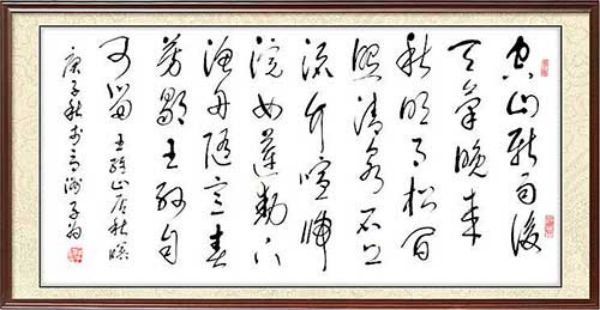 空山新雨後
天氣晚來
秋明月松間
照清泉石上
流竹喧歸
浣女蓮動下
漁舟隨意春
芳歇王孫自
可留 王維山居秋暝
庚子秋於